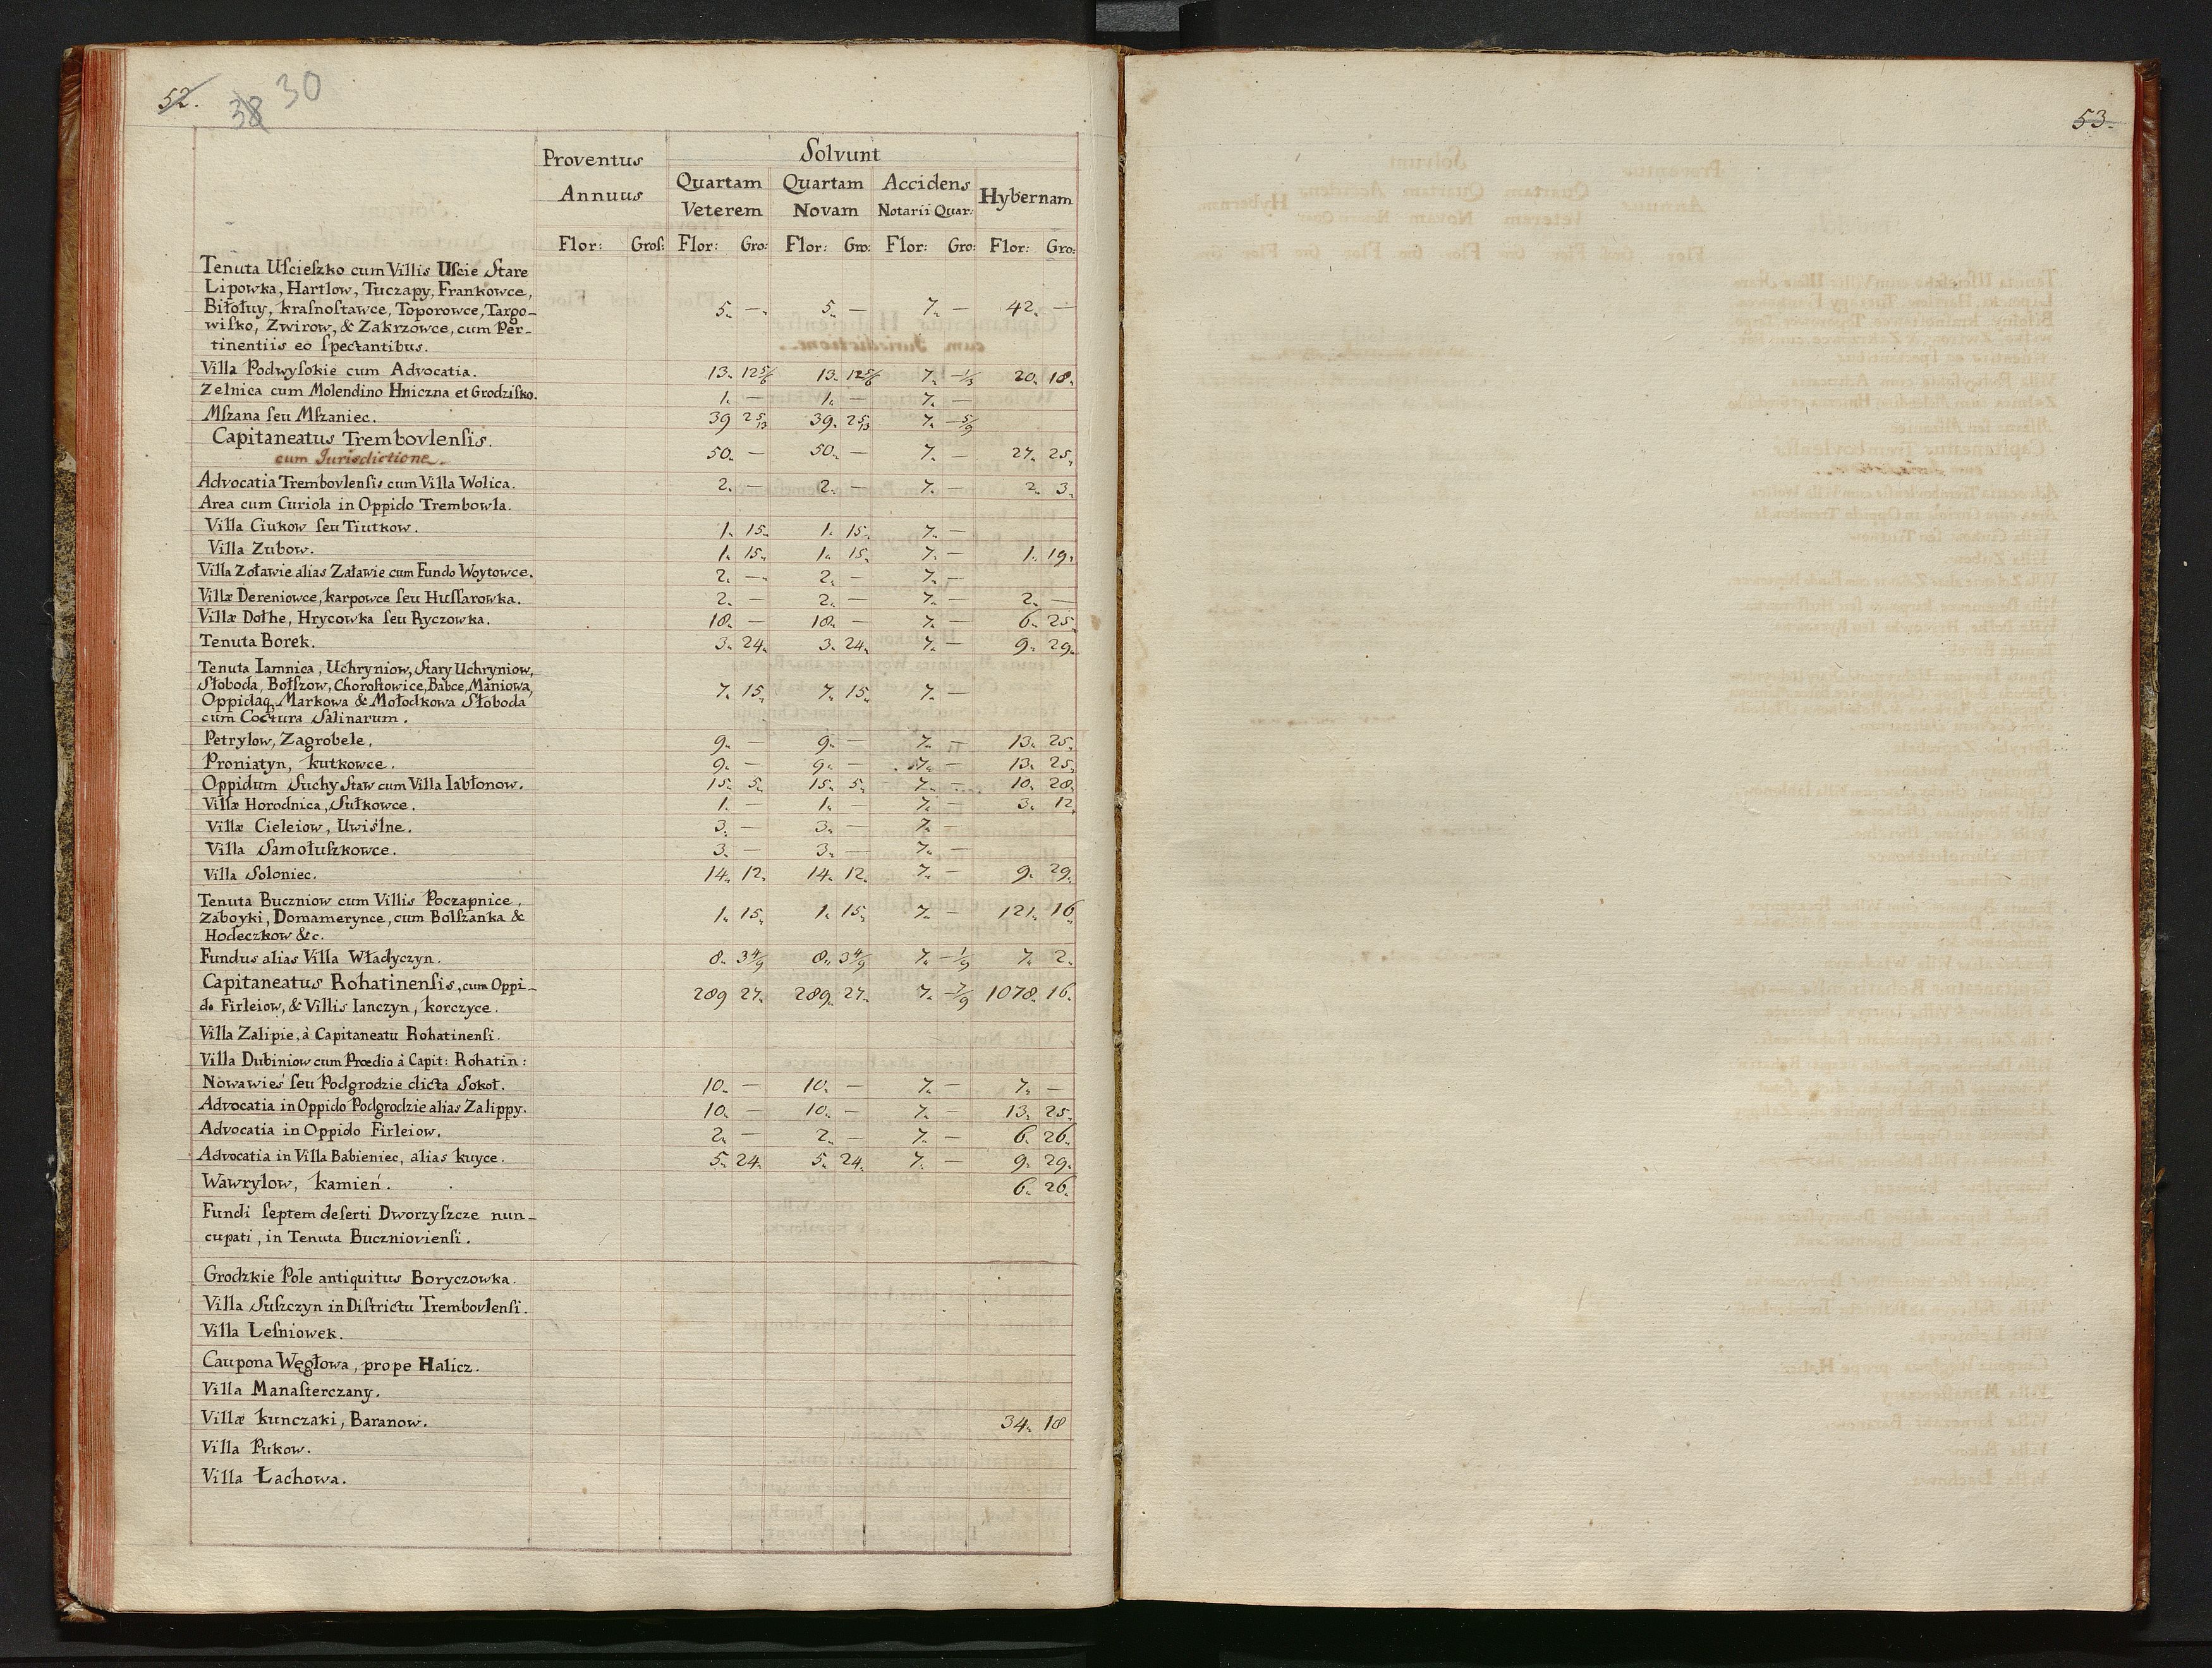 52.
38 30
Proventus Annuus Solvunt
Quartam Veterem Quartam Novam Accidens Notarii Quar: Hybernam
Flor: Groſ: Flor: Gro: Flor: Gro: Flor: Gro: Flor: Gro:
Tenuta Uſcieſzko cum Villis Uſcie Stare
Lipowka, Hartlow, Tuczapy, Frankowce,
Biłołuy, kraſnoſtawce, Toporowce, Targo-
wiſko, Zwirow, & Zakrzowce, cum Per-
tinentiis eo ſpectantibus. 5. — 5. — 7. — 42. —
Villa Podwyſokie cum Advocatia. 13. 12 5/6 13. 12 5/6 7. — 1/3 20. 18.
Zelnica cum Molendino Hniczna et Grodziſko. 1. — 1. — 7. —
Mſzana ſeu Mſzaniec. 39 2 5/13 39. 2 5/13 7. — 5/9
Capitaneatus Trembovlenſis.
cum Jurisdictione. 50. — 50. — 7. — 27. 25.
Advocatia Trembovlenſis cum Villa Wolica. 2. — 2. — 7. — 2. 3.
Area cum Curiola in Oppido Trembowla.
Villa Ciukow ſeu Tiutkow. 1. 15. 1. 15. 7. —
Villa Zubow. 1. 15. 1. 15. 7. — 1. 19.
Villa Zoławie alias Załawie cum Fundo Woytowce. 2. — 2. — 7. —
Villæ Dereniowce, karpowce ſeu Huſſarowka. 2. — 2. — 7. — 2. —
Villæ Dołhe, Hrycowka ſeu Ryczowka. 18. — 18. — 7. — 6. 25.
Tenuta Borek. 3. 24. 3. 24. 7. — 9. 29.
Tenuta Iamnica, Uchryniow, Stary Uchryniow,
Słoboda, Bołſzow, Choroſtowice, Babce, Maniowa,
Oppidaq, Markowa & Mołodkowa Słoboda
cum Coctura Salinarum. 7. 15. 7. 15. 7. —
Petryłow, Zagrobele, 9. — 9. — 7. — 13. 25.
Proniatyn, kutkowce. 9. — 9. — 7. — 13. 25.
Oppidum Suchy Staw cum Villa Iabłonow. 15. 5. 15. 5. 7. — 10. 28.
Villæ Horodnica, Sułkowce. 1. — 1. — 7. — 3. 12.
Villæ Cieleiow, Uwiślne. 3. — 3. — 7. —
Villa Samołuſzkowce. 3. — 3. — 7. —
Villa Soloniec. 14. 12. 14. 12. 7. — 9. 29.
Tenuta Buczniow cum Villis Poczapnice,
Zaboyki, Domamerynce, cum Bolſzanka &
Hodeczkow &c. 1. 15. 1. 15. 7. — 121. 16.
Fundus alias Villa Władyczyn. 8. 3 4/9 8. 3 4/9 7. — 1/9 7. 2.
Capitaneatus Rohatinenſis, cum Oppi-
do Firleiow, & Villis Ianczyn, korczyce. 289 27. 289. 27. 7. — 7/9 1078. 16.
Villa Zalipie, à Capitaneatu Rohatinenſi.
Villa Dubiniow cum Prædio à Capit: Rohatin:
Nowawieś ſeu Podgrodzie dicta Sokoł. 10. — 10. — 7. — 7. —
Advocatia in Oppido Podgrodzie alias Zalippy. 10. — 10. — 7. — 13. 25.
Advocatia in Oppido Firleiow. 2. — 2. — 7. — 6. 26.
Advocatia in Villa Babieniec, alias kuyce. 5. 24. 5. 24. 7. — 9. 29.
Wawryłow, kamień. 6. 26.
Fundi ſeptem deſerti Dworzyſzcze nun-
cupati, in Tenuta Buczniovienſi.
Grodzkie Pole antiquitus Boryczowka.
Villa Suſzczyn in Diſtrictu Trembovlenſi.
Villa Leſniowek.
Caupona Węgłowa, prope Halicz.
Villa Manaſterczany.
Villæ kunczaki, Baranow. 34. 18
Villa Pukow.
Villa Łachowa.
53.